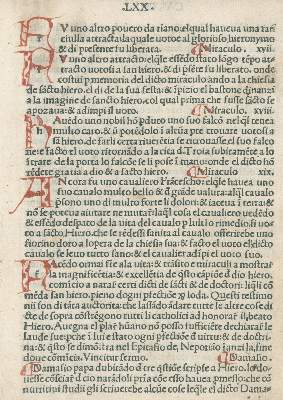 .LXX.
R Vno altro pouero da riano, elqual haueua una fan
ciulla attracta, la quale uotoe al glorioso hieronymo
& di presente fu liberata. Miraculo. xvii.
R Vno altro attracto, elqle essedo stato logo tepo at
tracto uotosi a san hiero, & di psete fu liberato. onde
costui p memoria del dicto miraculo ando a la chiesia
de sacto hiero. el di de la sua festa: & ipizio el bastone dinanzi
a la imagine de sancto hiero. col qual prima che fusse sacto se
apozaua: & adimpi il uoto. Miraculo. xviii
R Auedo uno nobil ho pduto uno suo falcon
multo caro. & no potedolo i alcua pte trouare uotosi a
san hiero. de farli certa riueretia se
nete facto el uoto ritornado a la
trare de la porta lo falcoe se li pose i mano: onde el dicto ho
redete gratia a dio & a sacto hiero. Miraculo xix.
A Ncora fu uno caualiero Fracescho: elqle haue uno
suo caualo multo bello & di grade ualuta: alql caualo
pieno uno di multo forte li dolori: & iaceua i terra: &
no se potcua aiutare ne mutare: laql cosa el caualiero uededo
& essedo desparo de la uita del caualo p lulti o rimedio si uo
to a sacto Hiero. che se redesse sanita al caualo. offerirebe uno
fiorino doro a lopera de la chiesa sua: & facto el uoto el dicto
caualo se leuo tutto sano: & el caualier adipi el uoto suo.
P Redeto omai fie a la uita: & trasito & miraculi a mostrar
la magnificetia: & excelletia de qsto capioe di dio hiero.
comicio a narar certi dicti de sacti & de doctori: liqli co
medao san hiero. pieno dogni pfectioe xi loda. Questi rissimi
ni son di tata auctorita che lassado adare tutte le altre cose di
cte de sopra costregono tutti li catholici ad honorar il beato
Hiero. Auegna el plar huano no possa sufficiete dechiarar le
laude sue: pche i lui e stato ogni pfectioe di uirtu: & de doctri
na: & qsto se dimostra nel Epitafio, de Nepotiao i una la fine
doue comicia. Vincitur sermo. Damaso.
D Amasio papa dubitado d tre qstioe scripse a Hiero. lo do
uesse cosciar d cio naradoli pria coe esso haueua pmesso: che co
mutuatioi studii gli scriuerebe alcue cose leqle el dicto Dama